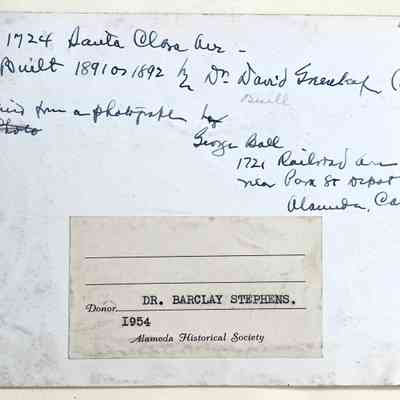 1724 Santa Clara Ave -
Built 1891 or 1892 by Dr. David
Built
from a photograph by
Photo
George Ball
1721 Railroad Ave
near Park St Depot
Alameda, Ca
Donor DR. BARCLAY STEPHENS.
1954
Alameda Historical Society